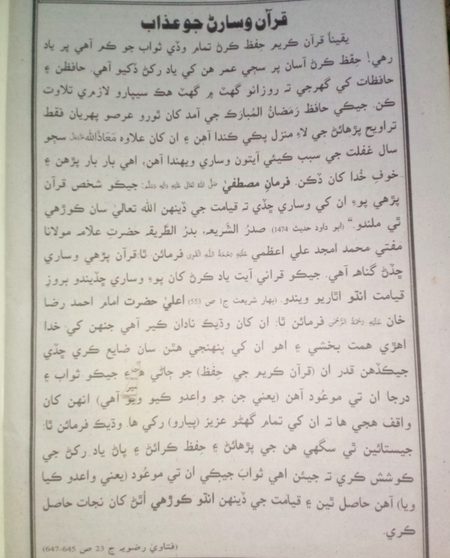 قرآن وسارڻ جو عذاب
يقيناً قرآن ڪريم حِفظ ڪرڻ تمام وڏي ثواب جو ڪم آهي پر ياد
رهي! حِفظ ڪرڻ آسان پر سڄي عمر هن کي ياد رکڻ ڏکيو آهي. حافظن ۽
حافظات کي گهرجي تہ روزانو گهٽ ۾ گهٽ هڪ سيپارو لازمي تلاوت
ڪن. جيڪي حافظ رَمَضانُ المُبارَڪ جي آمد کان ٿورو عرصو پهريان فقط
تراويح پڙهائڻ جي لاءِ منزل پڪي ڪندا آهن ۽ ان کان علاوه مَعَاذَالله سڄو
سال غفلت جي سبب ڪيئي آيتون وساري ويهندا آهن، اهي بار بار پڙهن ۽
خوفِ خُدا کان ڏڪن. فرمانِ مصطفيٰ صلى الله تعالى عليه واله وسلم: جيڪو شخص قرآن
پڙهي پوءِ ان کي وساري ڇڏي تہ قيامت جي ڏينهن الله تعاليٰ سان ڪوڙهي
ٿي ملندو.“ (ابو داود حديث 1474) صدرُ الشَّريعہ، بدرُ الطَّريقہ حضرت علامہ مولانا
مفتي محمد امجد علي اعظمي عَلَيْهِ رَحْمَةُ اللهِ الْقَوِى فرمائن ٿا: قرآن پڙهي وساري
ڇڏڻ گناهہ آهي. جيڪو قرآني آيت ياد ڪرڻ کان پوءِ وساري ڇڏيندو بروزِ
قيامت انڌو اٿاريو ويندو. (بهار شريعت ج1 ص 553) اعليٰ حضرت امام احمد رضا
خان عَلَيْهِ رَحْمَةُ الرَّحْمٰن فرمائن ٿا: ان کان وڌيڪ نادان ڪير آهي جنهن کي خدا
اهڙي همت بخشي ۽ اهو ان کي پنهنجي هٿن سان ضايع ڪري ڇڏي
جيڪڏهن قدر ان (قرآن ڪريم جي حِفظ) جو ڄاڻي ها ۽ جيڪو ثواب ۽
درجا ان تي موعُود آهن (يعني جن جو واعدو ڪيو ويو آهي) انهن کان
واقف هجي ها تہ ان کي تمام گهڻو عزيز (پيارو) رکي ها. وڌيڪ فرمائن ٿا:
جيستائين ٿي سگهي هن جي پڙهائڻ ۽ حِفظ ڪرائڻ ۽ پاڻ ياد رکڻ جي
ڪوشش ڪري تہ جيئن اهي ثوابَ جيڪي ان تي موعُود (يعني واعدو ڪيا
ويا) آهن حاصل ٿين ۽ قيامت جي ڏينهن انڌو ڪوڙهي اُٿڻ کان نجات حاصل
ڪري.
(فتاويٰ رضويہ ج 23 ص 645-647)